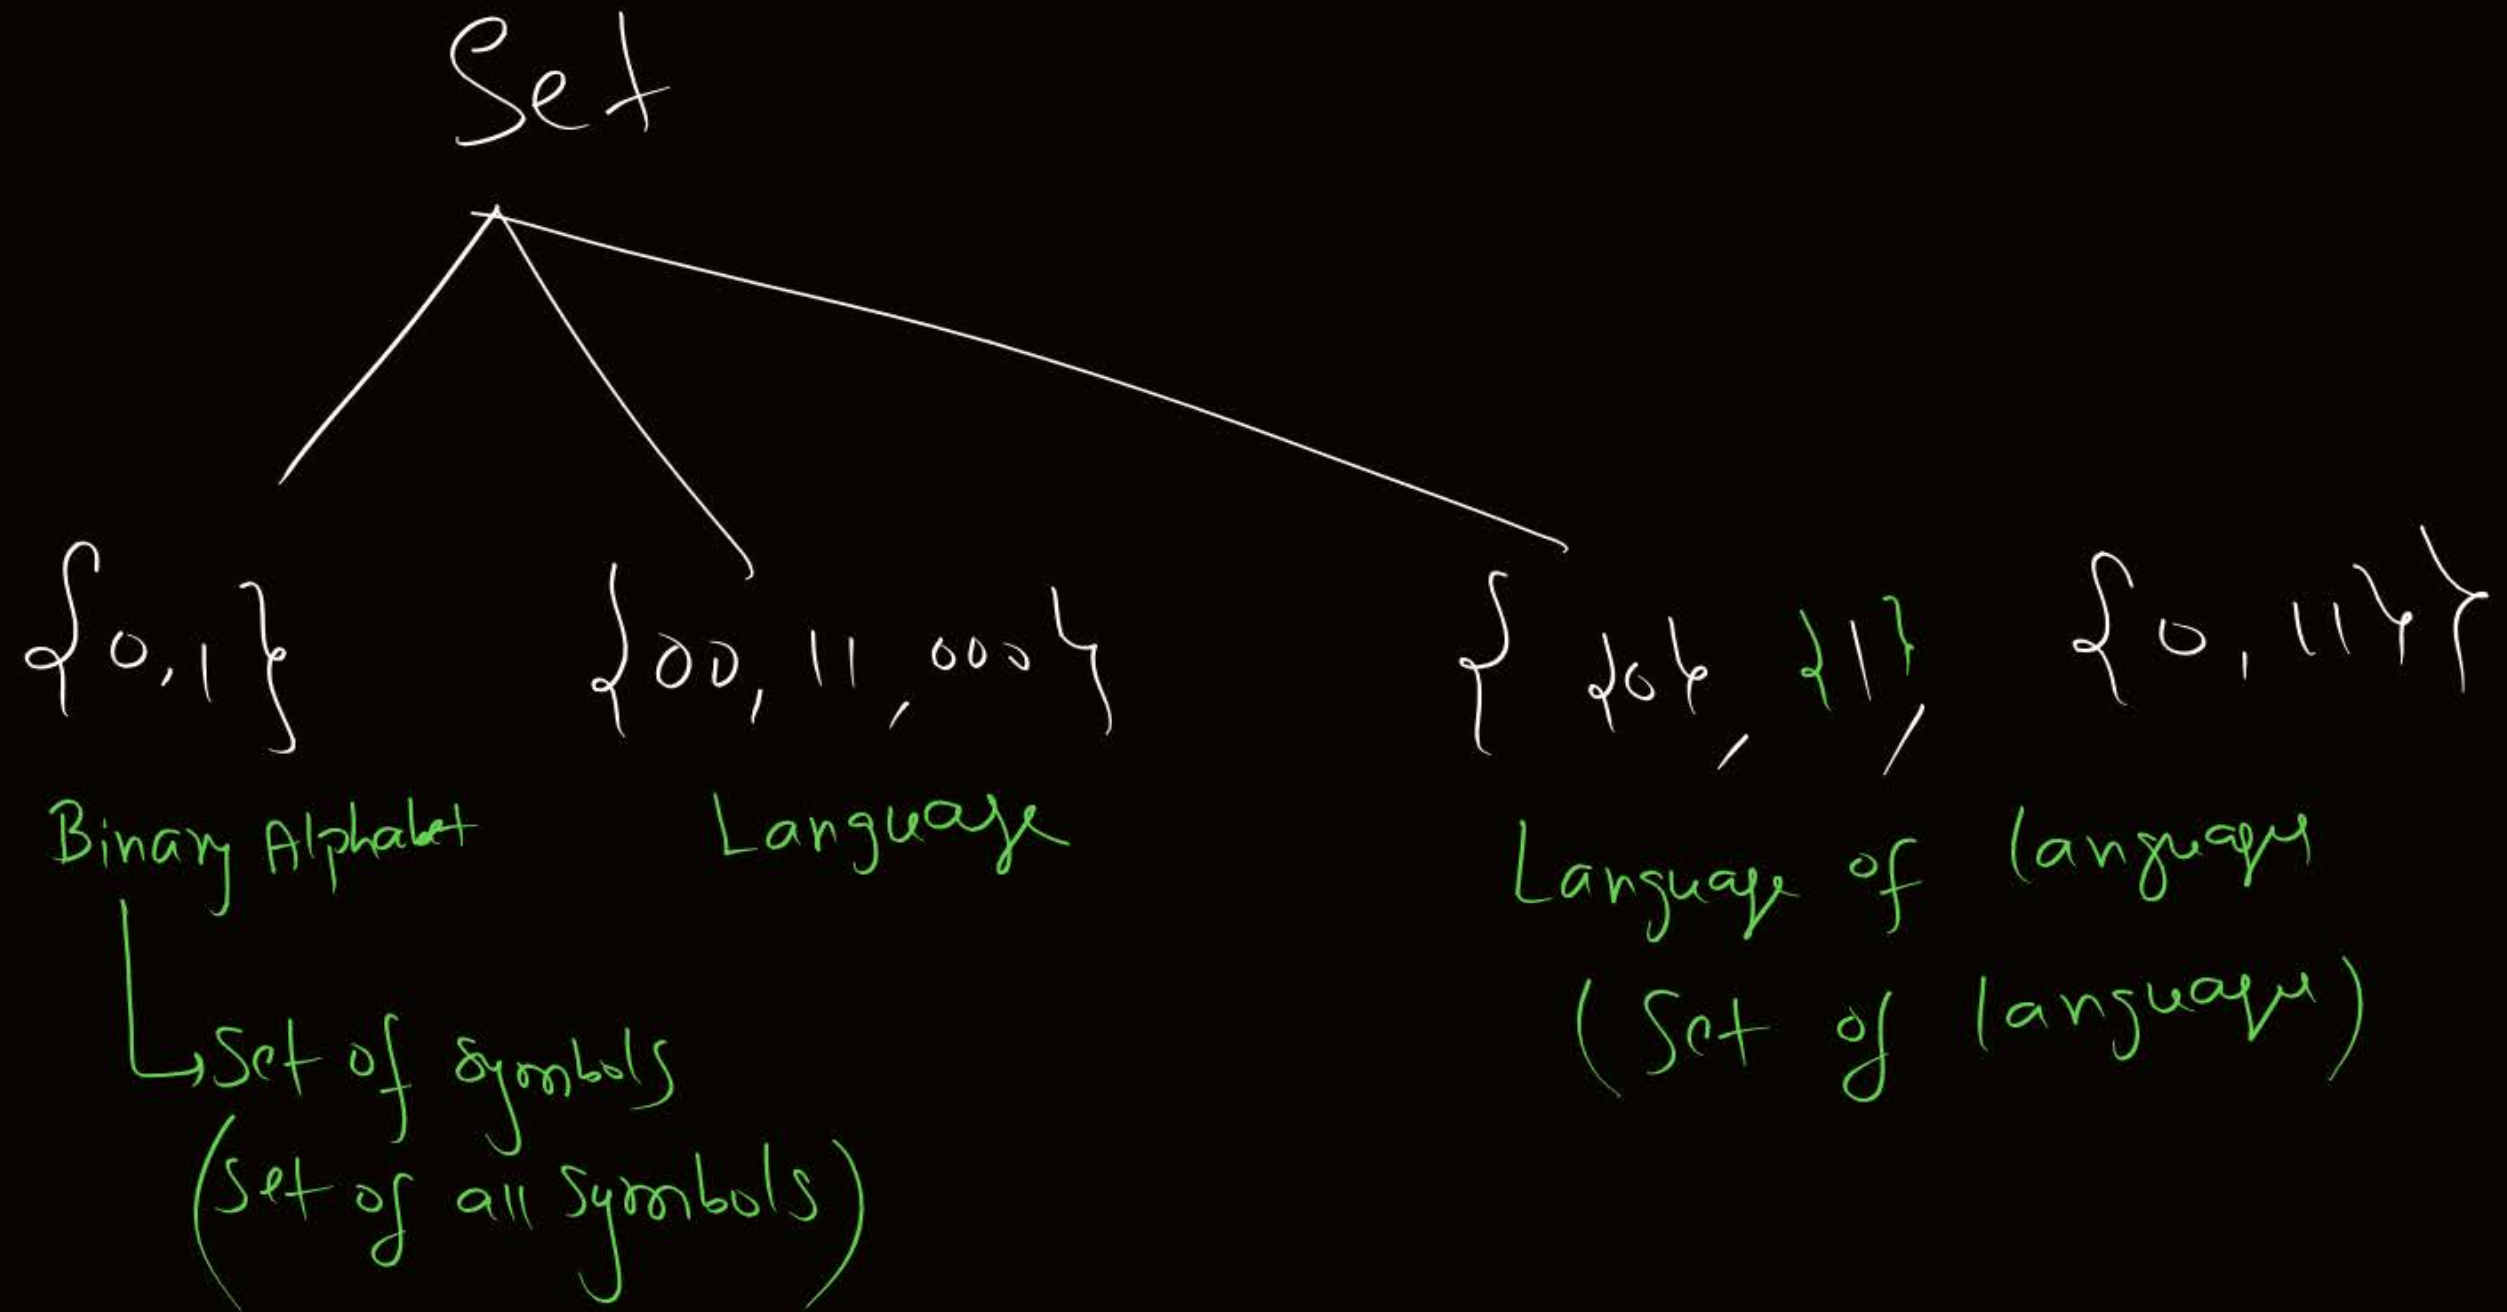 Set
{0,1} {00, 11, 000} { {0}, {1}, {0, 11} }
Binary Alphabet Language Language of languages
↳ Set of symbols (Set of languages)
(Set of all symbols)